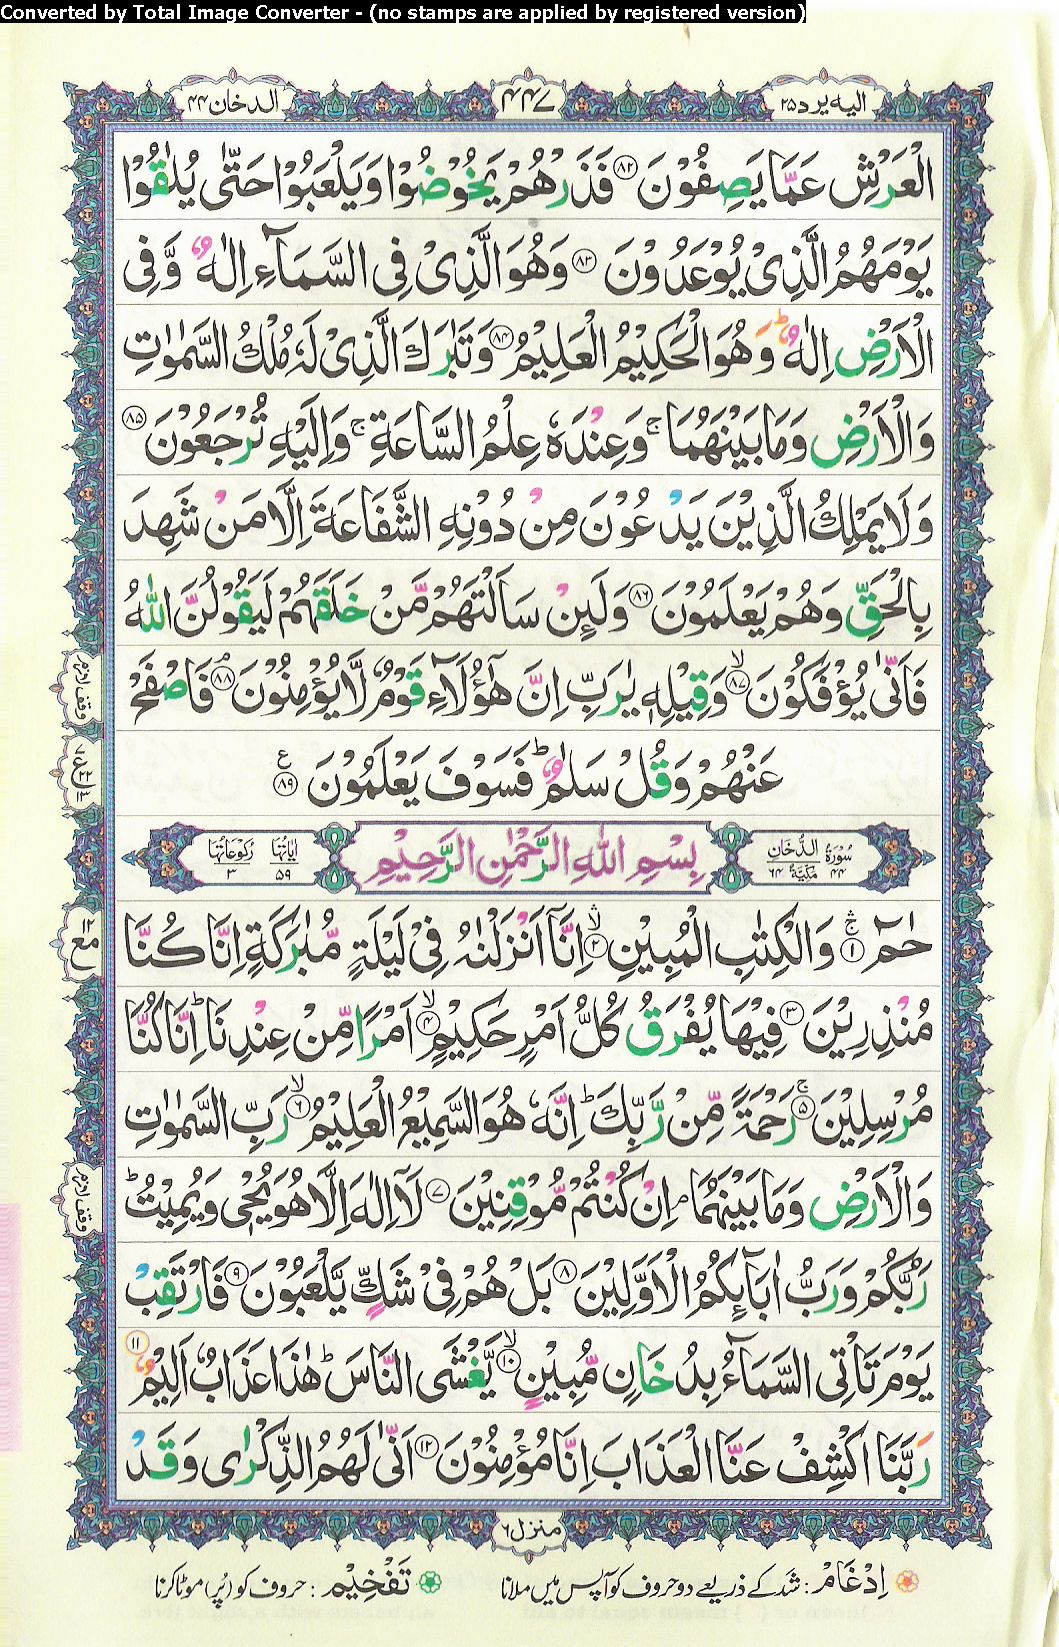 Converted by Total Image Converter - (no stamps are applied by registered version)
الیه یرد ۲۵
۴۴۷
الدخان ۴۴
الْعَرْشِ عَمَّا يَصِفُوْنَ ۸۲ فَذَرْهُمْ يَخُوْضُوْا وَيَلْعَبُوْا حَتّٰى يُلٰقُوْا
يَوْمَهُمُ الَّذِىْ يُوْعَدُوْنَ ۸۳ وَهُوَ الَّذِىْ فِى السَّمَآءِ اِلٰهٌ وَّفِى
الْاَرْضِ اِلٰهٌ ؕ وَهُوَ الْحَكِيْمُ الْعَلِيْمُ ۸۴ وَتَبٰرَكَ الَّذِىْ لَهٗ مُلْكُ السَّمٰوٰتِ
وَالْاَرْضِ وَمَا بَيْنَهُمَا ۚ وَعِنْدَهٗ عِلْمُ السَّاعَةِ ۚ وَاِلَيْهِ تُرْجَعُوْنَ ۸۵
وَلَا يَمْلِكُ الَّذِيْنَ يَدْعُوْنَ مِنْ دُوْنِهِ الشَّفَاعَةَ اِلَّا مَنْ شَهِدَ
بِالْحَقِّ وَهُمْ يَعْلَمُوْنَ ۸۶ وَلَئِنْ سَاَلْتَهُمْ مَّنْ خَلَقَهُمْ لَيَقُوْلُنَّ اللّٰهُ
فَاَنّٰى يُؤْفَكُوْنَ ۙ ۸۷ وَقِيْلِهٖ يٰرَبِّ اِنَّ هٰٓؤُلَآءِ قَوْمٌ لَّا يُؤْمِنُوْنَ ۘ ۸۸ فَاصْفَحْ
وقف لازم
عَنْهُمْ وَقُلْ سَلٰمٌ ؕ فَسَوْفَ يَعْلَمُوْنَ ۸۹ ع
سُوْرَةُ الدُّخَانِ ۴۴ مَكِّيَّةٌ ۶۴
بِسْمِ اللّٰهِ الرَّحْمٰنِ الرَّحِيْمِ
اٰيَاتُهَا ۵۹ رُكُوْعَاتُهَا ۳
حٰمٓ ۚ ۱ وَالْكِتٰبِ الْمُبِيْنِ ۙ ۲ اِنَّآ اَنْزَلْنٰهُ فِىْ لَيْلَةٍ مُّبٰرَكَةٍ اِنَّا كُنَّا
مُنْذِرِيْنَ ۳ فِيْهَا يُفْرَقُ كُلُّ اَمْرٍ حَكِيْمٍ ۙ ۴ اَمْرًا مِّنْ عِنْدِنَا ؕ اِنَّا كُنَّا
مُرْسِلِيْنَ ۚ ۵ رَحْمَةً مِّنْ رَّبِّكَ ؕ اِنَّهٗ هُوَ السَّمِيْعُ الْعَلِيْمُ ۙ ۶ رَبِّ السَّمٰوٰتِ
وَالْاَرْضِ وَمَا بَيْنَهُمَا ۘ اِنْ كُنْتُمْ مُّوْقِنِيْنَ ۷ لَآ اِلٰهَ اِلَّا هُوَ يُحْىٖ وَيُمِيْتُ ؕ
وقف لازم
رَبُّكُمْ وَرَبُّ اٰبَآئِكُمُ الْاَوَّلِيْنَ ۸ بَلْ هُمْ فِىْ شَكٍّ يَّلْعَبُوْنَ ۹ فَارْتَقِبْ
يَوْمَ تَاْتِى السَّمَآءُ بِدُخَانٍ مُّبِيْنٍ ۙ ۱۰ يَّغْشَى النَّاسَ ؕ هٰذَا عَذَابٌ اَلِيْمٌ ۱۱
رَبَّنَا اكْشِفْ عَنَّا الْعَذَابَ اِنَّا مُؤْمِنُوْنَ ۱۲ اَنّٰى لَهُمُ الذِّكْرٰى وَقَدْ
منزل ۶
اِدْغَامْ : شد کے ذریعے دو حروف کو آپس میں ملانا
تَفْخِيْم : حروف کو (پُر) موٹا کرنا